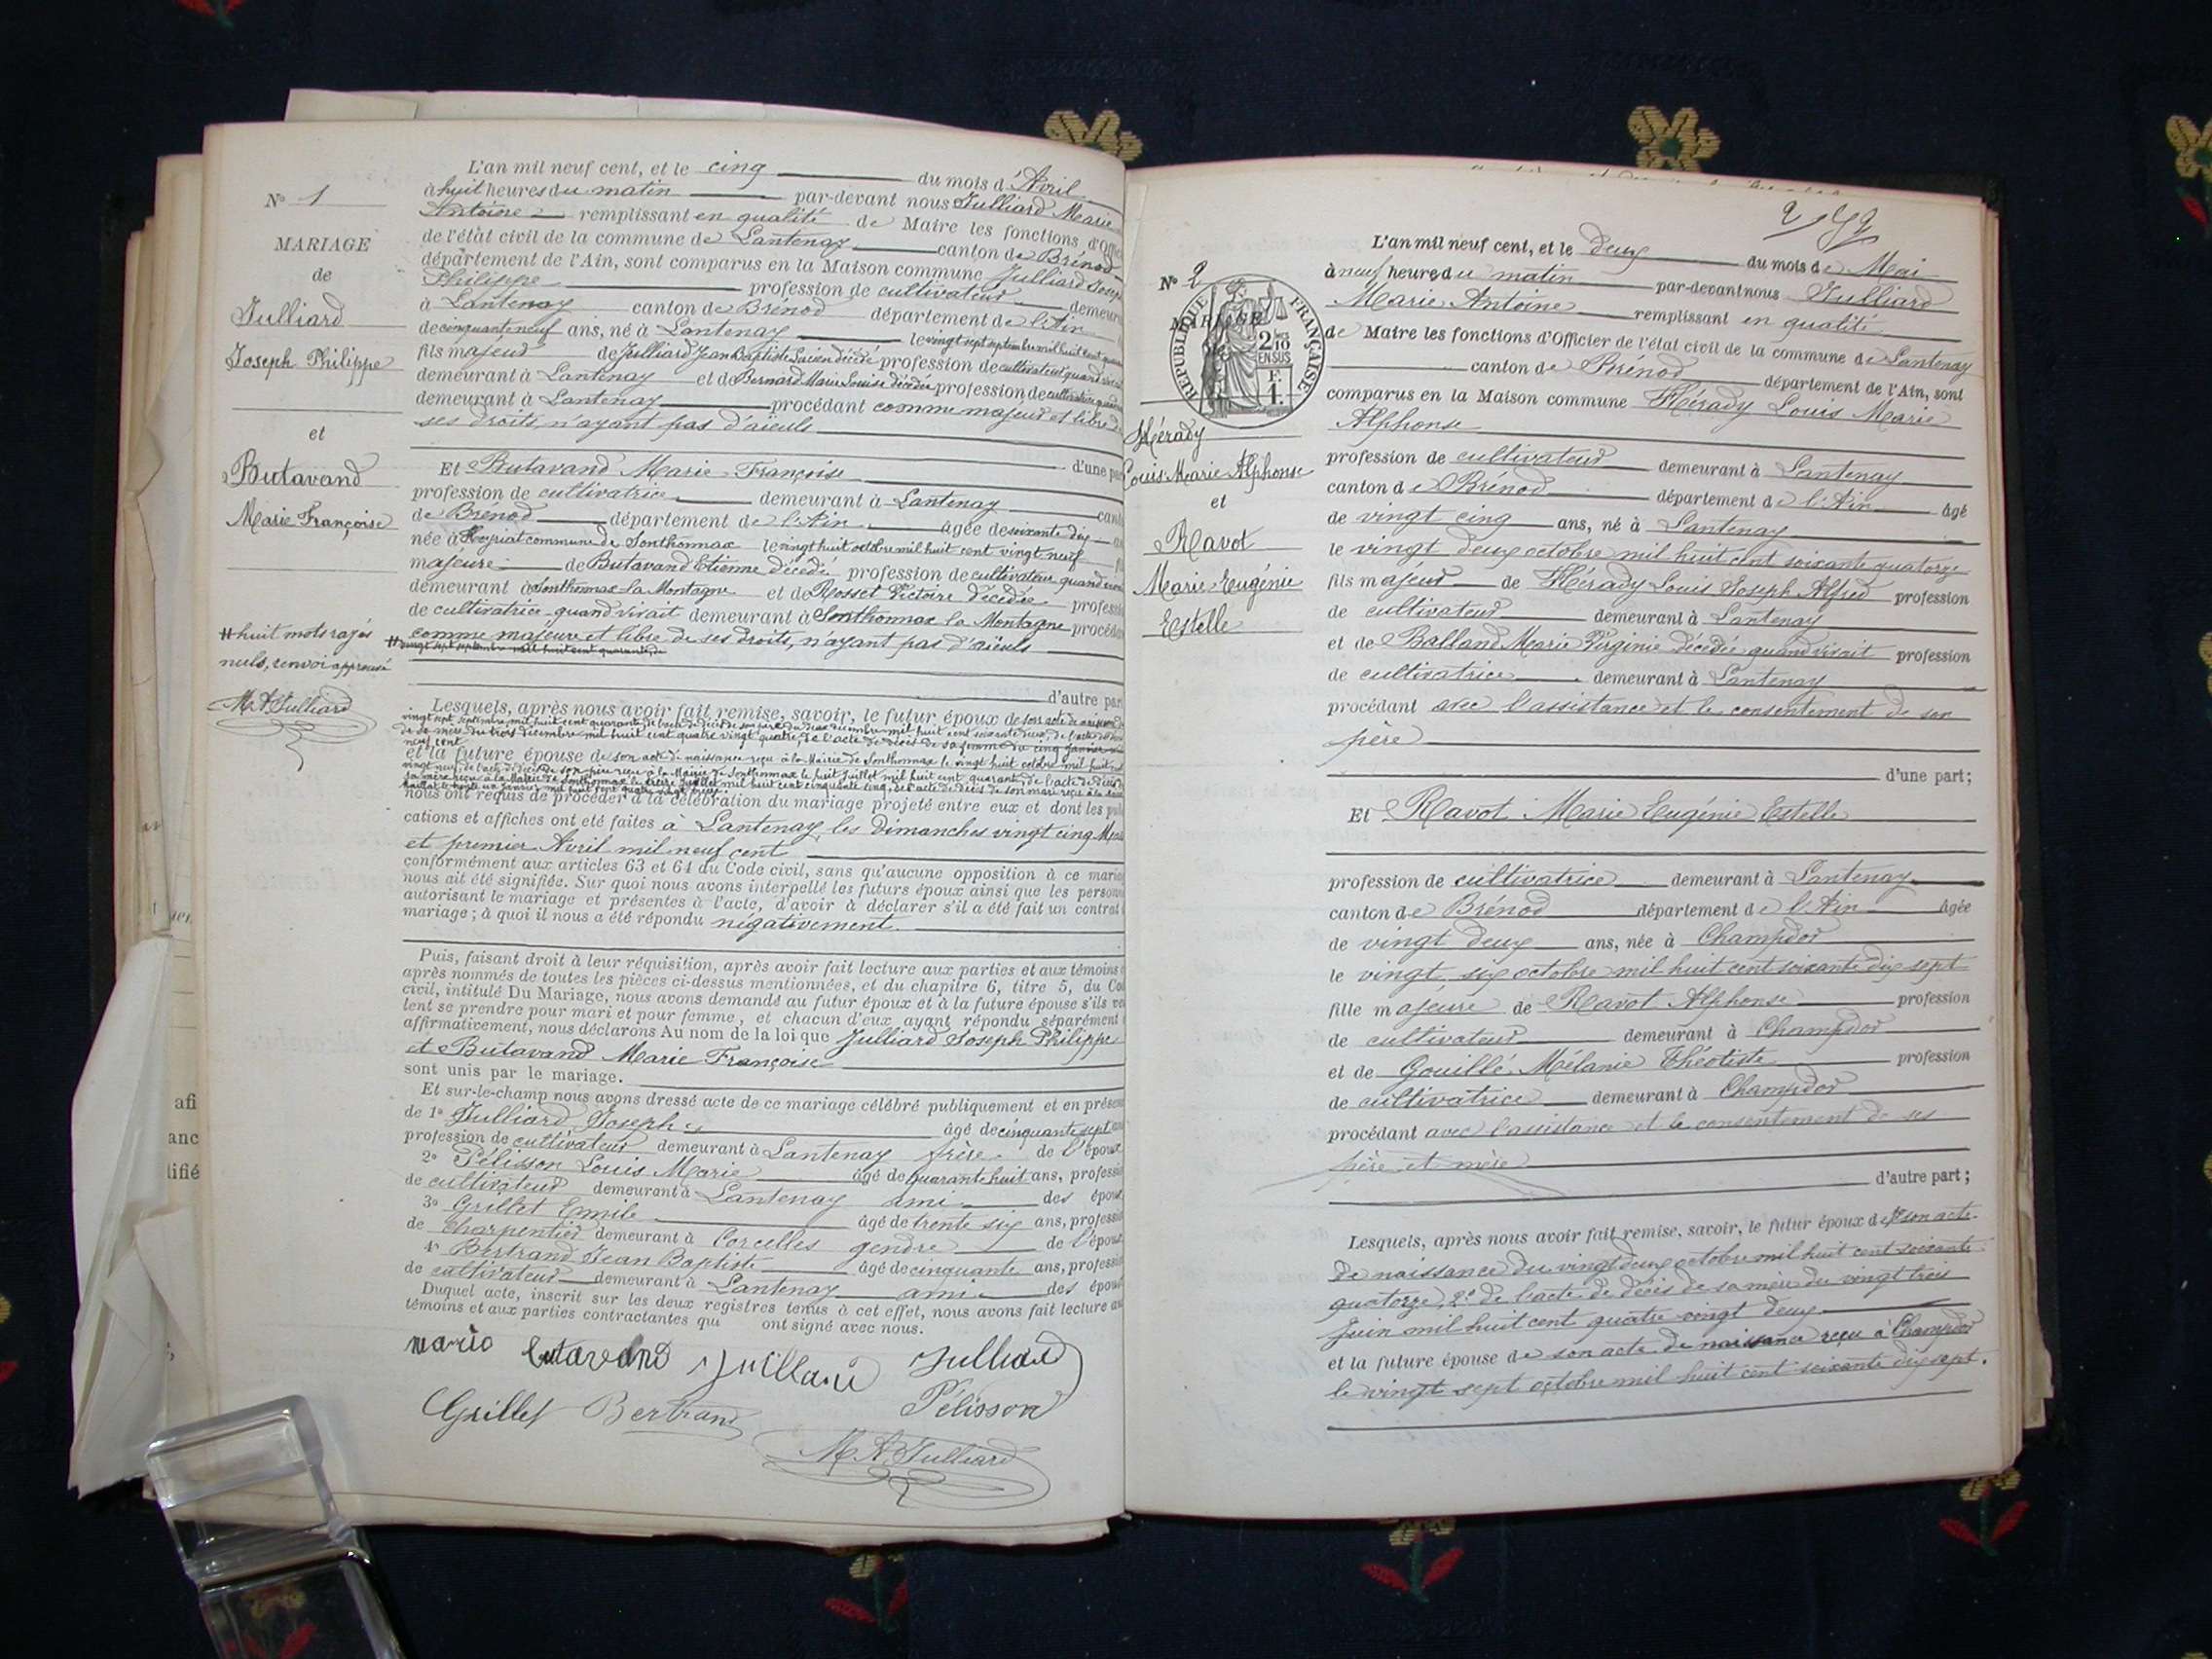 N° 1
MARIAGE
de
Julliard
Joseph Philippe
et
Butavand
Marie Françoise
# huit mots rayés
nuls, renvoi approuvé
M. A. Julliard
L'an mil neuf cent, et le cinq du mois d'Avril
à huit heures du matin par-devant nous Julliard Marie
Antoine remplissant en qualité de Maire les fonctions d'Offic
de l'état civil de la commune de Lantenay canton de Brénod
département de l'Ain, sont comparus en la Maison commune Julliard Joseph
Philippe profession de cultivateur demeur
à Lantenay canton de Brénod département de l'Ain
de cinquante neuf ans, né à Lantenay le vingt sept septembre mil huit cent
fils majeur de Julliard Jean Baptiste Lucien décédé profession de cultivateur quand
demeurant à Lantenay et de Bernard Marie Louise décédée profession de cultivatrice
demeurant à Lantenay procédant comme majeur et libre de
ses droits, n'ayant pas d'aïeuls
d'une par
Et Butavand Marie Françoise
profession de cultivatrice demeurant à Lantenay cant
de Brénod département de l'Ain âgée de soixante dix
née à Heyriat commune de Sonthonnax le vingt huit octobre mil huit cent vingt neuf
majeure de Butavand Etienne décédé profession de cultivateur quand
demeurant à Sonthonnax la Montagne et de Rosset Victoire décédée profess
de cultivatrice quand vivait demeurant à Sonthonnax la Montagne procéd
comme majeure et libre de ses droits, n'ayant pas d'aïeuls
# vingt sept septembre mil huit cent quarante, de
d'autre par
Lesquels, après nous avoir fait remise, savoir, le futur époux de son acte de naissance
vingt sept septembre mil huit cent quarante, de l'acte de décès de son père du deux décembre mil huit cent soixante deux, de l'acte de
de sa mère du trois décembre mil huit cent quatre vingt quatre, de l'acte de décès de sa femme du cinq janvier mil
neuf cent
et la future épouse de son acte de naissance reçu à la Mairie de Sonthonnax le vingt huit octobre mil huit
vingt neuf, de l'acte de décès de son père reçu à la Mairie de Sonthonnax le huit Juillet mil huit cent quarante, de l'acte de décès
sa mère reçu à la Mairie de Sonthonnax le treize Juillet mil huit cent cinquante cinq, de l'acte de décès de son mari reçu à la
nous ont requis de procéder à la célébration du mariage projeté entre eux et dont les pu
cations et affiches ont été faites à Lantenay, les Dimanches vingt cinq Mars
et premier Avril mil neuf cent
conformément aux articles 63 et 64 du Code civil, sans qu'aucune opposition à ce maria
nous ait été signifiée. Sur quoi nous avons interpellé les futurs époux ainsi que les person
autorisant le mariage et présentes à l'acte, d'avoir à déclarer s'il a été fait un contrat
mariage; à quoi il nous a été répondu négativement.
Puis, faisant droit à leur réquisition, après avoir fait lecture aux parties et aux témoins
après nommés de toutes les pièces ci-dessus mentionnées, et du chapitre 6, titre 5, du Co
civil, intitulé Du Mariage, nous avons demandé au futur époux et à la future épouse s'ils ve
lent se prendre pour mari et pour femme, et chacun d'eux ayant répondu séparément
affirmativement, nous déclarons Au nom de la loi que Julliard Joseph Philippe
et Butavand Marie Françoise
sont unis par le mariage.
Et sur-le-champ nous avons dressé acte de ce mariage célébré publiquement et en présen
de 1° Julliard Joseph âgé de cinquante sept
profession de cultivateur demeurant à Lantenay frère de l'époux
2° Pélisson Louis Marie âgé de quarante huit ans, professi
de cultivateur demeurant à Lantenay ami des époux
3° Grillet Emile âgé de trente six ans, professi
de Charpentier demeurant à Corcelles gendre de l'épous
4° Bertrand Jean Baptiste âgé de cinquante ans, professi
de cultivateur demeurant à Lantenay ami des époux
Duquel acte, inscrit sur les deux registres tenus à cet effet, nous avons fait lecture au
témoins et aux parties contractantes qui ont signé avec nous.
marie butavand Juillard Julliard
Grillet Bertrand Pélisson
M. A. Julliard
2
N° 2
MARIAGE
RÉPUBLIQUE FRANÇAISE
2/10
EN SUS
F.
1.
Hérady
Louis Marie Alphonse
et
Ravot
Marie Eugénie
Estelle
L'an mil neuf cent, et le deux du mois de Mai
à neuf heures du matin par-devant nous Julliard
Marie Antoine remplissant en qualité
de Maire les fonctions d'Officier de l'état civil de la commune de Lantenay
canton de Brénod département de l'Ain, sont
comparus en la Maison commune Hérady Louis Marie
Alphonse
profession de cultivateur demeurant à Lantenay
canton de Brénod département de l'Ain âgé
de vingt cinq ans, né à Lantenay
le vingt deux octobre mil huit cent soixante quatorze
fils majeur de Hérady Louis Joseph Alfred profession
de cultivateur demeurant à Lantenay
et de Balland Marie Virginie décédée quand vivait profession
de cultivatrice demeurant à Lantenay
procédant avec l'assistance et le consentement de son
père
d'une part;
Et Ravot Marie Eugénie Estelle
profession de cultivatrice demeurant à Lantenay
canton de Brénod département de l'Ain âgée
de vingt deux ans, née à Champdor
le vingt six octobre mil huit cent soixante dix sept
fille majeure de Ravot Alphonse profession
de cultivateur demeurant à Champdor
et de Gouillé Mélanie Théotiste profession
de cultivatrice demeurant à Champdor
procédant avec l'assistance et le consentement de ses
père et mère
d'autre part;
Lesquels, après nous avoir fait remise, savoir, le futur époux de 1° son acte
de naissance du vingt deux octobre mil huit cent soixante
quatorze, 2° de l'acte de décès de sa mère du vingt trois
Juin mil huit cent quatre vingt deux
et la future épouse de son acte de naissance reçu à Champdor
le vingt sept octobre mil huit cent soixante dix sept.